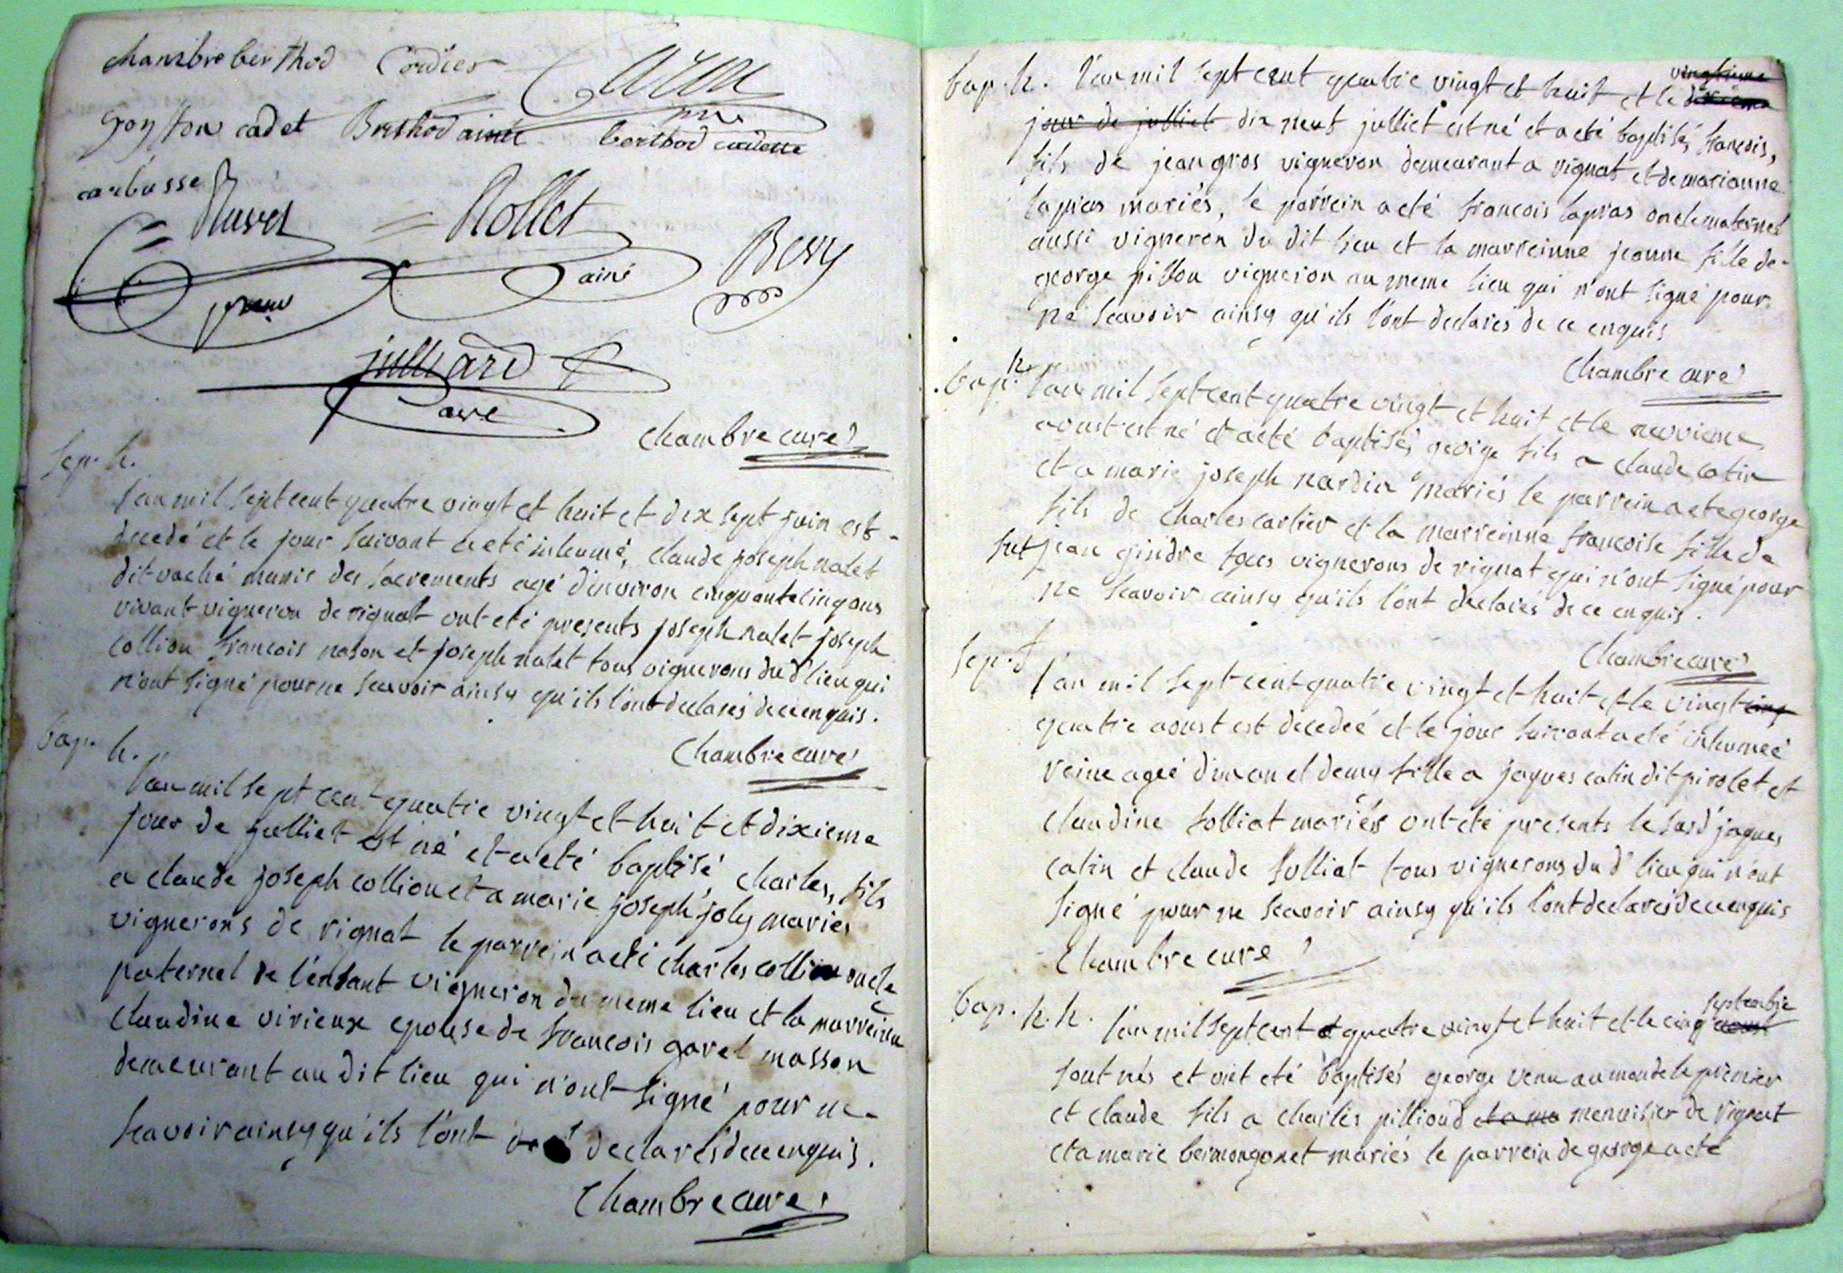 chambre berthod Cordier
goyfon cadet Berthod ainé berthod cadette
carbusse
Ruvet Rollet Bery
ainé
julliard
curé
Chambre curé
sep. h.
l'an mil sept cent quatre vingt et huit et dix sept juin est
decedé et le jour suivant a eté inhumé, claude joseph nalet
dit vaché munis des sacrements agé d'inviron cinquante cinq ans
vivant vigneron de rignat ont eté presents joseph nalet joseph
collion francois naton et joseph nalet tous vignerons du d' lieu qui
n'ont signé pour ne scavoir ainsy qu'ils l'ont declarés de ce enquis.
Chambre curé
bap. h.
l'an mil sept cent quatre vingt et huit et dixieme
jour de julliet est né et a eté baptisé charles, fils
a claude joseph collion et a marie joseph joly mariés
vignerons de rignat le parrein a eté charles collion oncle
paternel de l'enfant vigneron du meme lieu et la marreinne
claudine virieux epouse de francois gavet masson
demeurant au dit lieu qui n'ont signé pour ne
scavoir ainsy qu'ils l'ont declarés de ce enquis.
Chambre curé
bap. h. l'an mil sept cent quatre vingt et huit et le vingtieme dixieme
jour de julliet dix neuf julliet est né et a eté baptisé, francois,
fils de jean gros vigneron demeurant a rignat et de marianne
lapras mariés, le parrein a eté francois lapras oncle maternel
aussi vigneron du dit lieu et la marreinne jeanne fille de
george pillou vigneron au meme lieu qui n'ont signé pour
ne scavoir ainsy qu'ils l'ont declarés de ce enquis
Chambre curé
bap. h. l'an mil sept cent quatre vingt et huit et le neuvieme
aoust est né et a eté baptisé, george fils a claude catin
et a marie joseph nardin mariés le parrein a eté george
fils de charles carlier et la marreinne francoise fille de
fut jean gindre tous vignerons de rignat qui n'ont signé pour
ne scavoir ainsy qu'ils l'ont declarés de ce enquis.
Chambre curé
sep. f.
l'an mil sept cent quatre vingt et huit et le vingt cinq
quatre aoust est decedeé et le jour suivant a eté inhumeé
reine ageé d'un an et demy fille a jaques catin dit pirolet et
claudine solliat mariés ont eté presents le susd jaques
catin et claude solliat tous vignerons du d' lieu qui n'ont
signé pour ne scavoir ainsy qu'ils l'ont declarés de ce enquis
Chambre curé
bap. h. h. l'an mil sept cent et quatre vingt et huit et le cinq aoust septembre
sont nés et ont eté baptisés george venu au monde le premier
et claude fils a charles pilliond et a ma menuisier de rignat
et a marie bermongonet mariés le parrein de george a eté